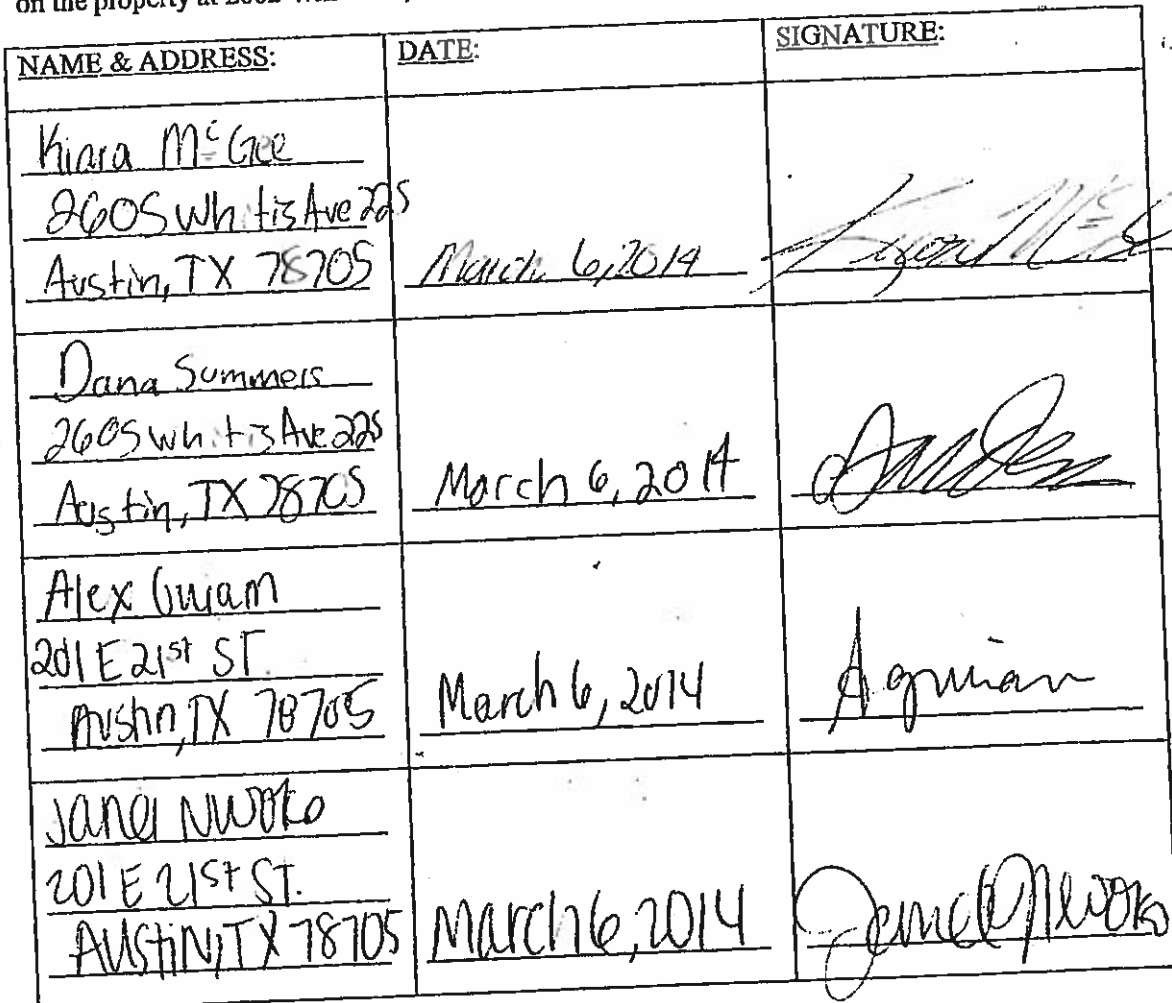 on the property at 2002
NAME & ADDRESS: DATE: SIGNATURE:
Kiara McGee
2605 Whitis Ave 225
Austin, TX 78705 March 6, 2014
Dana Summers
2605 Whitis Ave 225
Austin, TX 78705 March 6, 2014
Alex
201 E 21st ST
Austin, TX 78705 March 6, 2014
Nwoko
201 E 21st ST.
AUSTIN, TX 78705 March 6, 2014